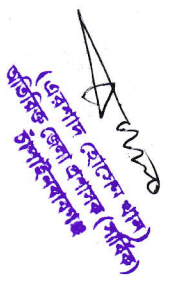 (এরশাদ হোসেন খান)
অতিরিক্ত জেলা প্রশাসক (সার্বিক)
চাঁপাইনবাবগঞ্জ